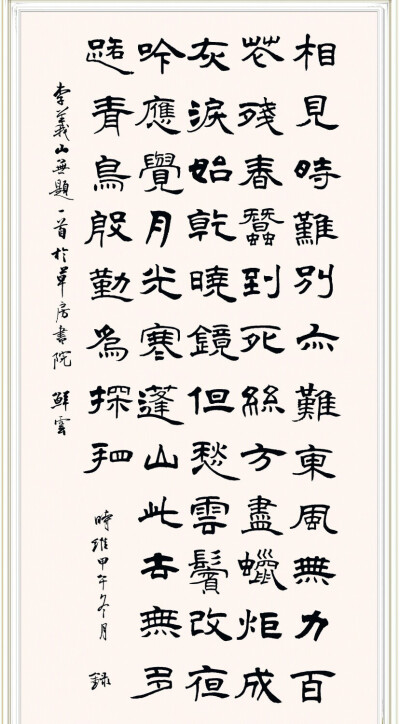 相見時難別亦難東風無力百
花殘春蠶到死絲方盡蠟炬成
灰淚始乾曉鏡但愁雲鬢改夜
吟應覺月光寒蓬山此去無多
路青鳥殷勤為探看
時維甲午冬月 錄
李義山無題一首於草房書院 鮮雲